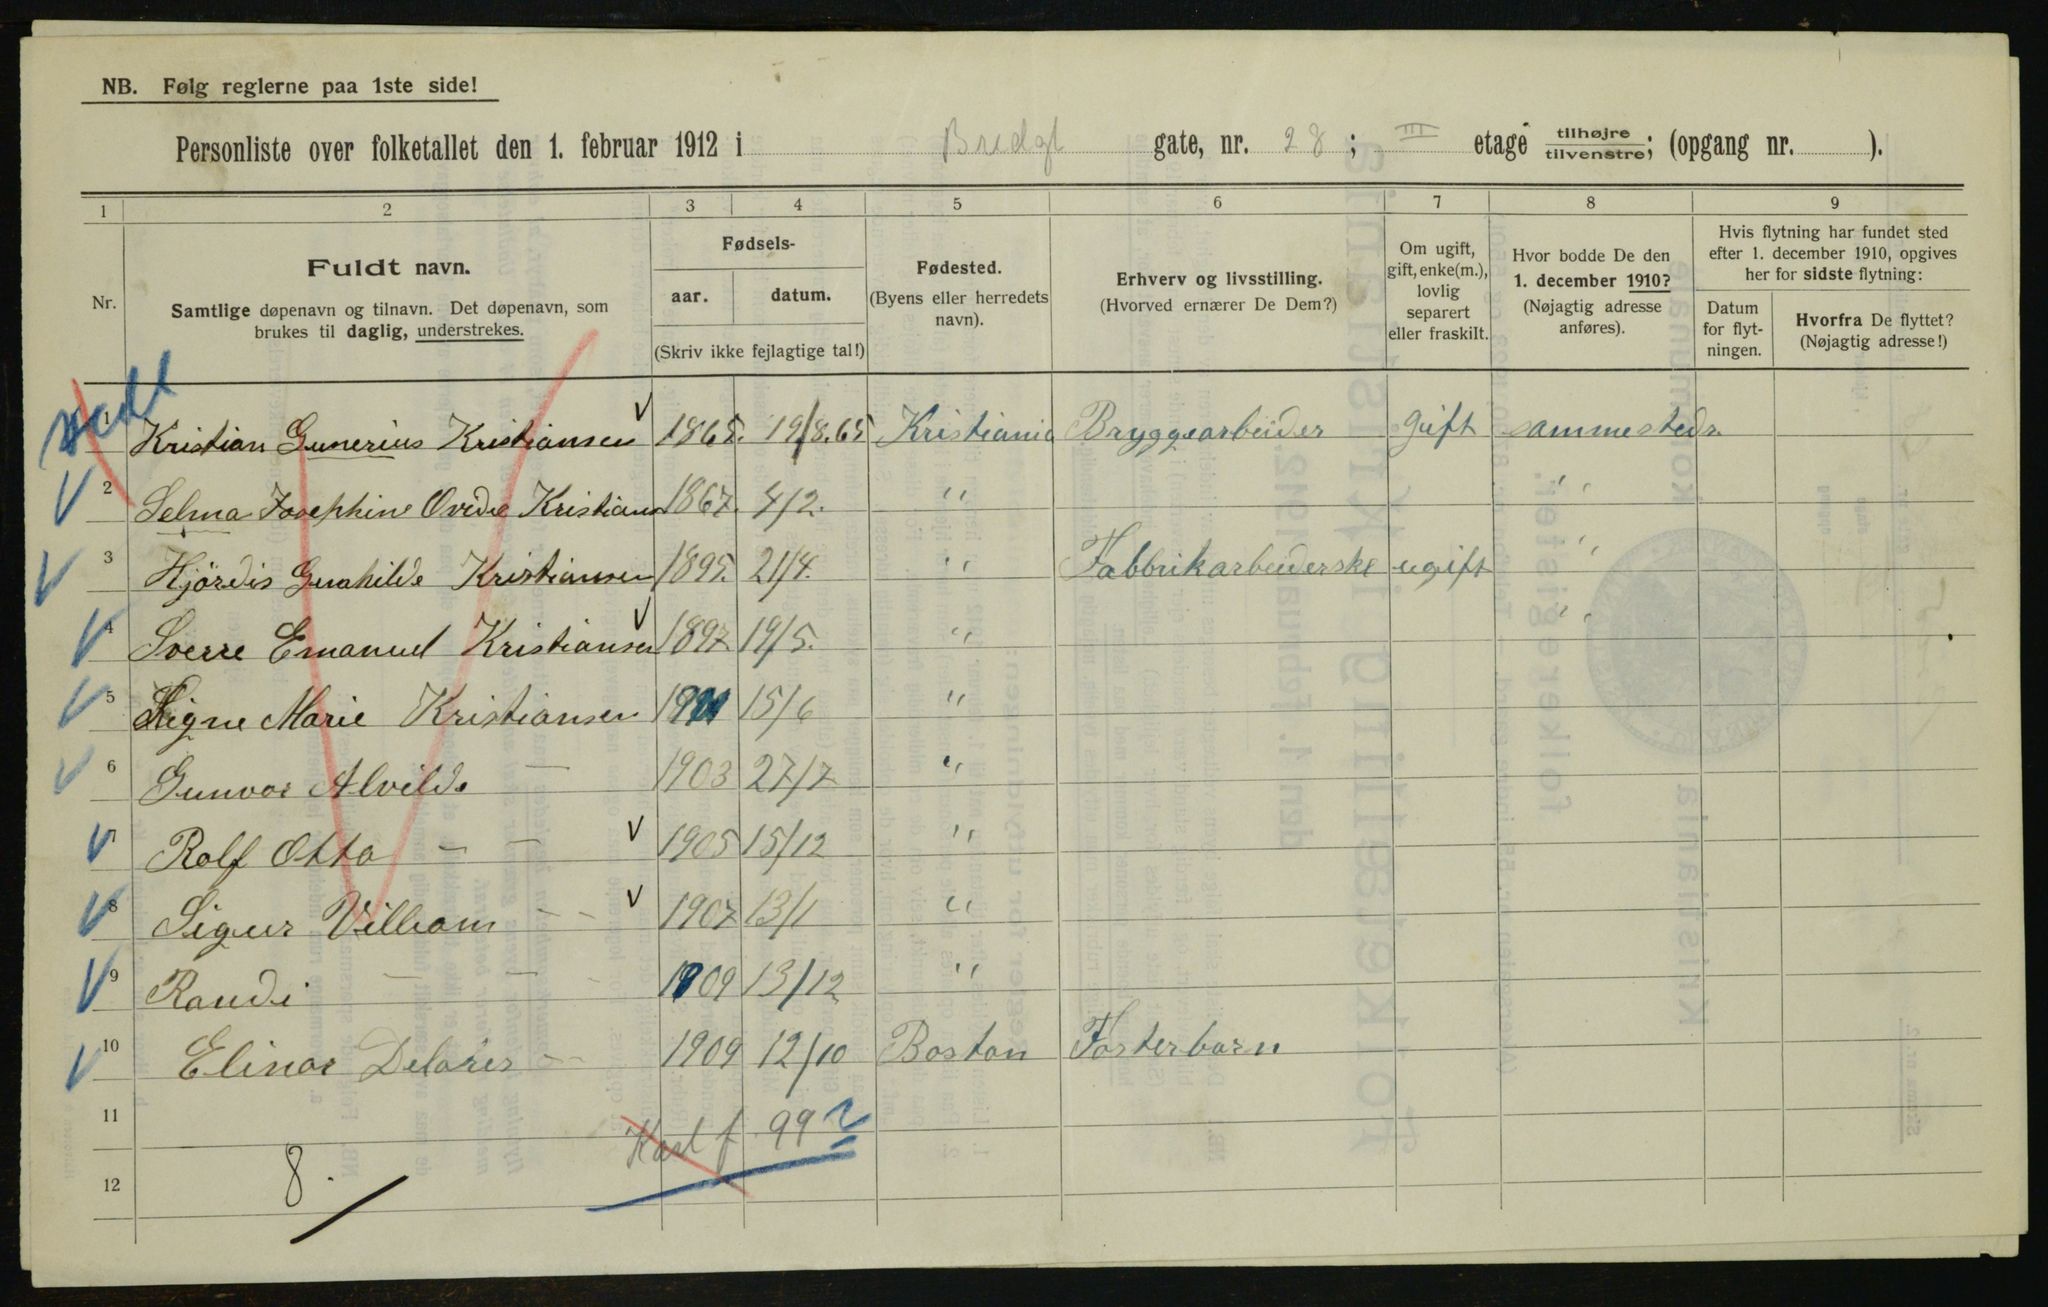 NB. Følg reglerne paa 1ste side!
Personliste over folketallet den 1. februar 1912 i Bredgt gate, nr. 28; III etage tilhøjre tilvenstre; (opgang nr. ).
1 2 3 4 5 6 7 8 9
Nr.
Fuldt navn.
Samtlige døpenavn og tilnavn. Det døpenavn, som
brukes til daglig, understrekes.
Fødsels-
aar. datum.
(Skriv ikke fejlagtige tal!)
Fødested.
(Byens eller herredets
navn).
Erhverv og livsstilling.
(Hvorved ernærer De Dem?)
Om ugift,
gift, enke(m.),
lovlig
separert
eller fraskilt.
Hvor bodde De den
1. december 1910?
(Nøjagtig adresse
anføres).
Hvis flytning har fundet sted
efter 1. december 1910, opgives
her for sidste flytning:
Datum
for flyt-
ningen.
Hvorfra De flyttet?
(Nøjagtig adresse!)
1 Kristian Gunerius Kristiansen 1865. 19/8.65 Kristiania Bryggearbeider gift sammesteds.
2 Selma Josephine Kristians 1867. 4/2. " "
3 Hjördis Gunhilde Kristiansen 1895. 21/4. " Fabbrikarbeiderske ugift "
4 Sverre Emanuel Kristiansen 1897. 19/5. " "
5 Signe Marie Kristiansen 15/6 "
6 Gunvor Alvilde — 1903 27/7 "
7 Rolf Otto — — 1905 15/12 "
8 Sigur Villiam — — 1907 13/1 "
9 Randi — — 1909 13/12 "
10 Elinor Delores — 1909 12/10 Boston Fosterbarn
11 99
12
8.